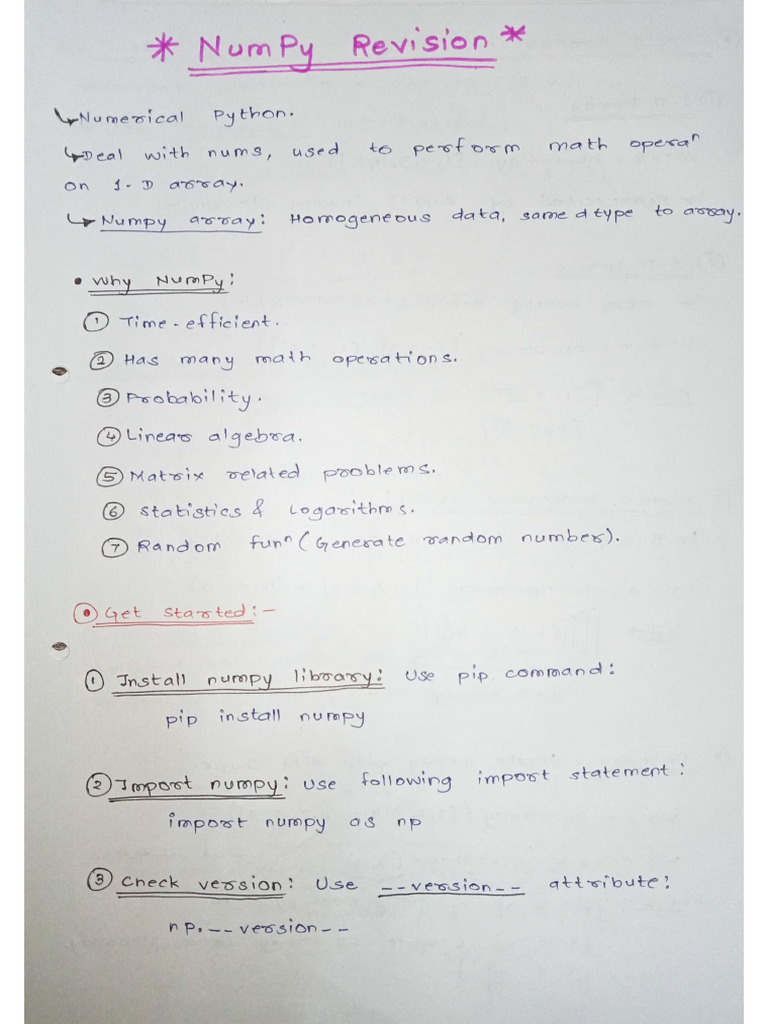 * NumPy Revision *
↳ Numerical Python.
↳ Deal with nums, used to perform math operaⁿ
on 1-D array.
↳ Numpy array: Homogeneous data, same dtype to array.
• Why NumPy:
① Time-efficient.
② Has many math operations.
③ Probability.
④ Linear algebra.
⑤ Matrix related problems.
⑥ Statistics & Logarithms.
⑦ Random funⁿ (Generate random number).
⊙ Get started:-
① Install numpy library: Use pip command:
pip install numpy
② Import numpy: Use following import statement:
import numpy as np
③ Check version: Use __version__ attribute:
np.__version__